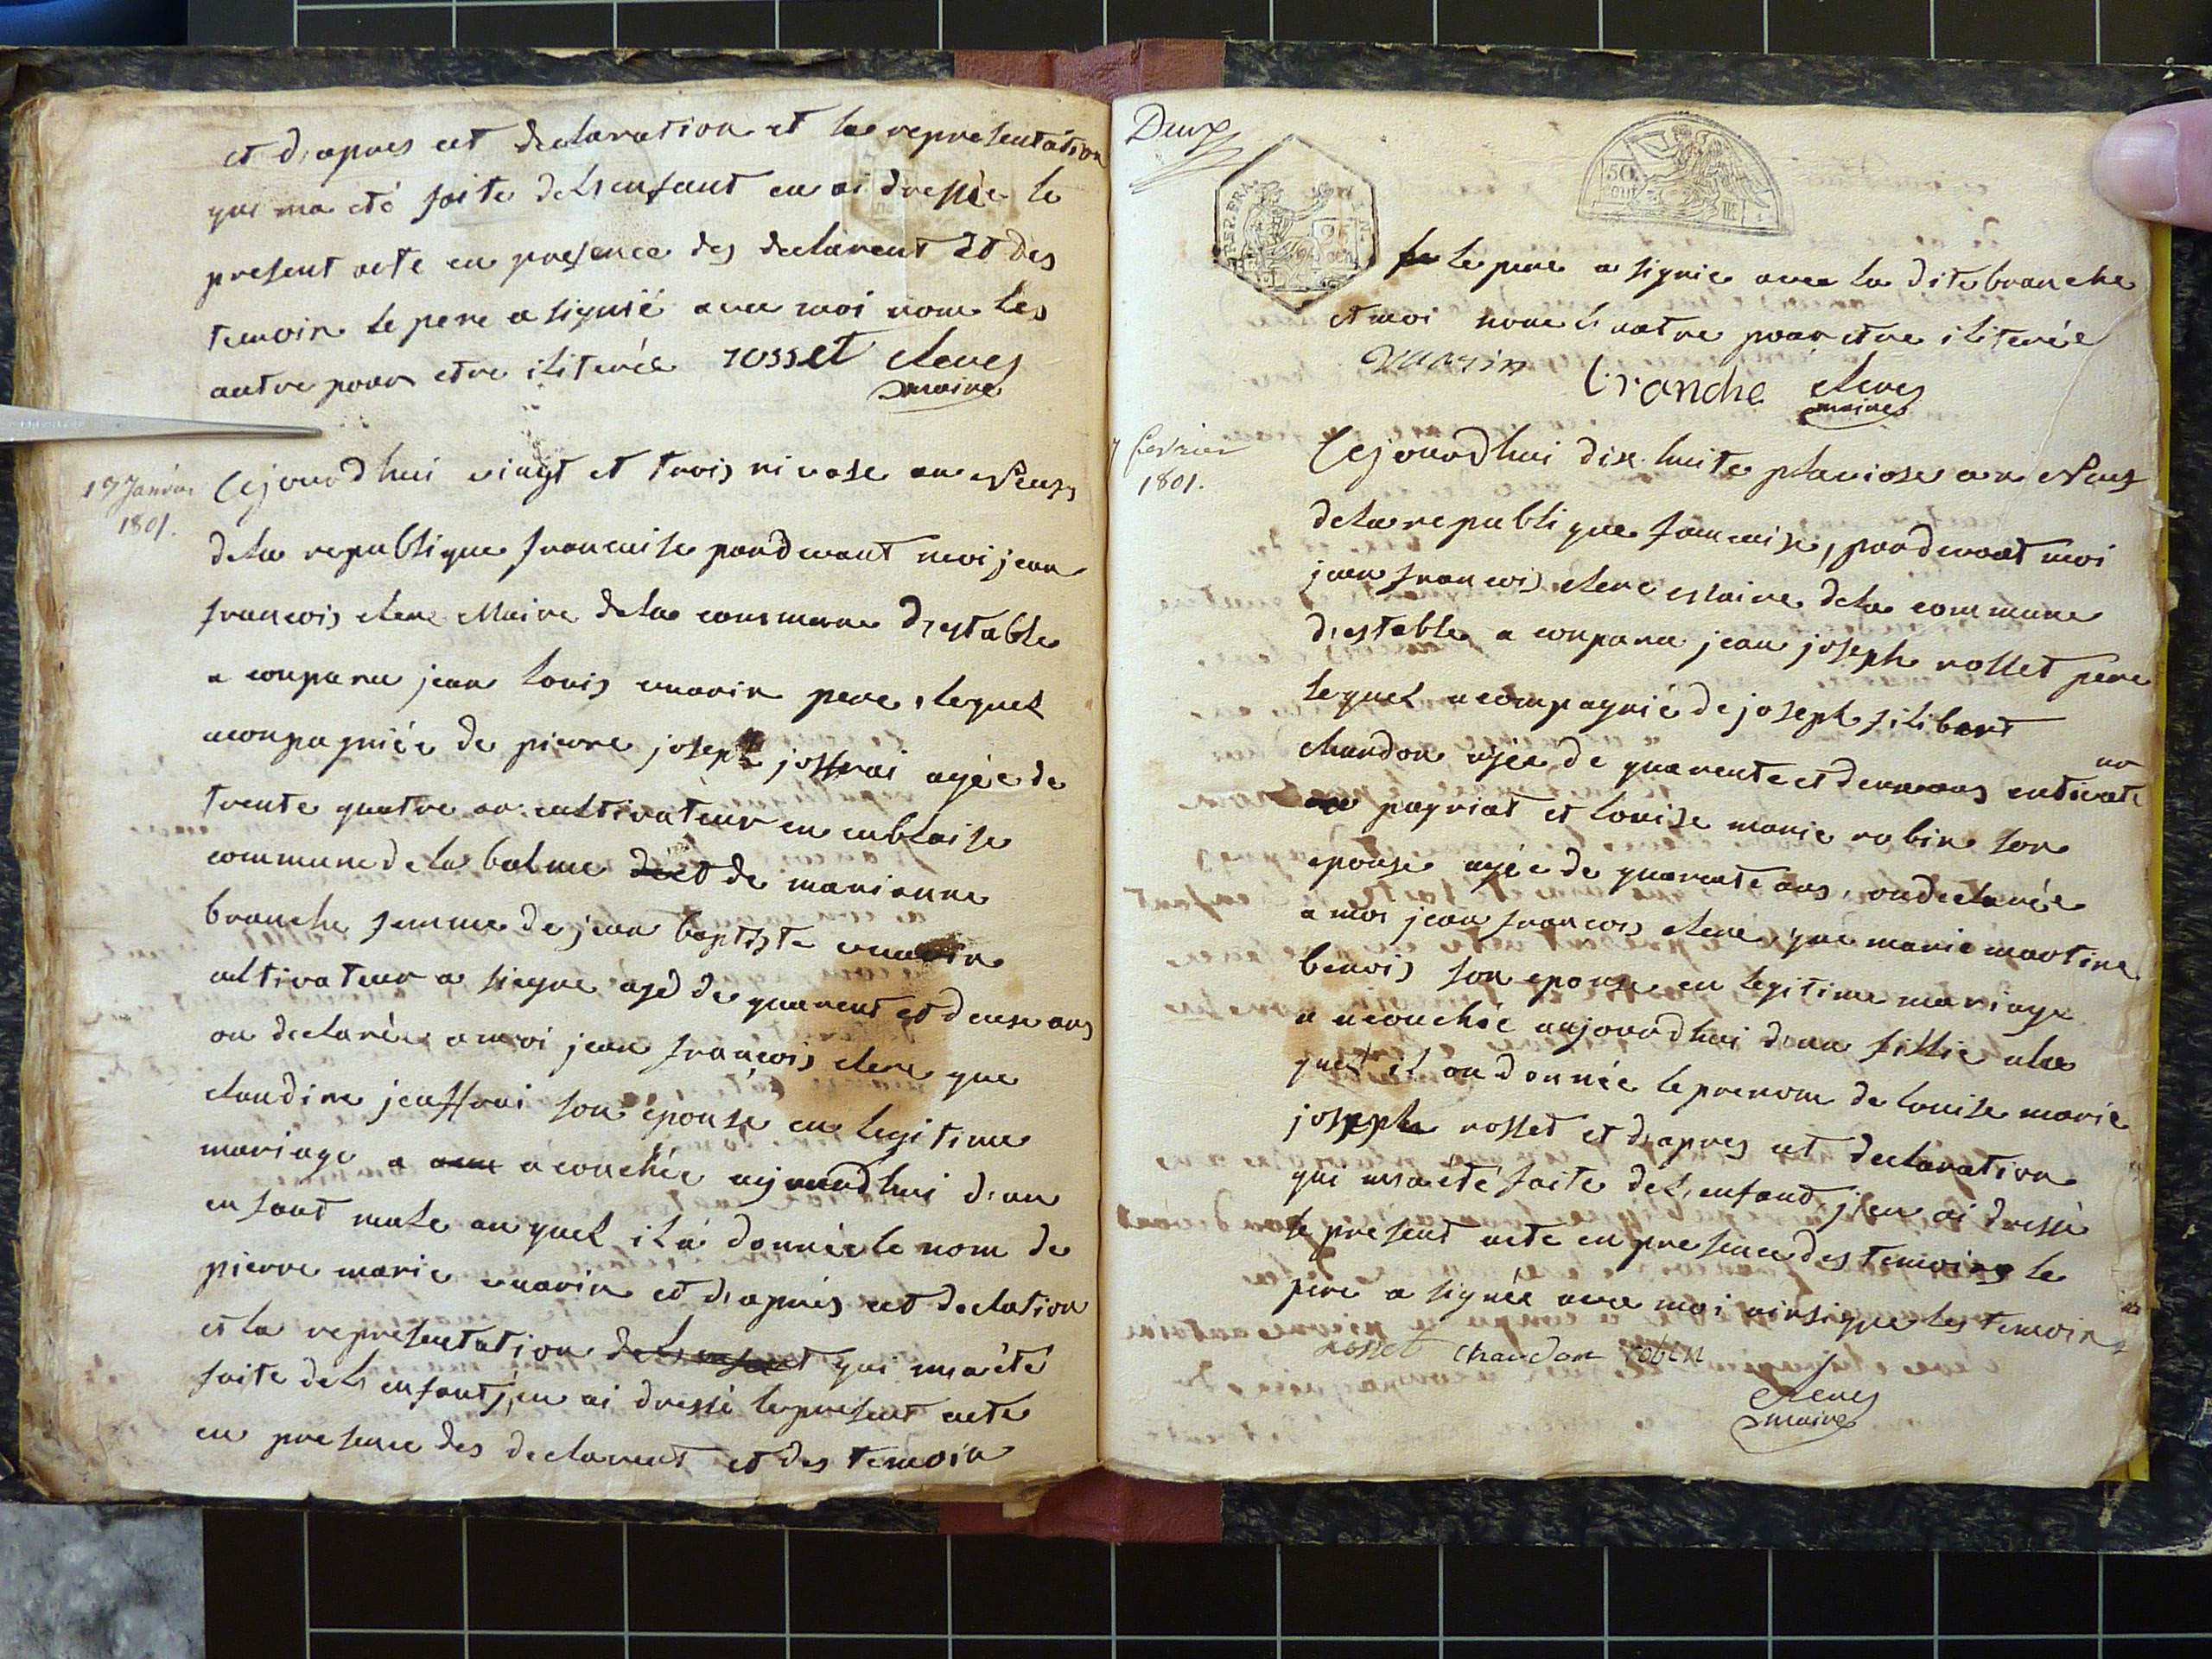 et d'apres cet declaration et la representation
qui ma eté faite de l'enfant en ai dressée le
present acte en presence des declarent et des
temoin le pere a signié avec moi nom les
autre pour etre iliterée rosset Clerc
maire
19 Janvier
1801.
Cejourd'hui vingt et trois nivose an Neuf
de la republique francaise pardevant moi jean
francois clerc Maire de la commune d'estable
a conparu jean louis marin pere, lequel
aconpagniée de pierre joseph joffrai agée de
trente quatre an cultivateur en cublaise
commune de la balme de et de marianne
branche femme de jean baptiste marin
cultivateur a siegne agé de quarent et deuse ans
on declarée a moi jean françois clerc que
claudine jeaffrai son épouse en legitime
mariage a acouchée aujourd'hui d'un
enfant male auquel il a donnée le nom de
pierre marie marin et d'apriés cet declation
et la representation de l'enfant qui m'a été
faite de l'enfant j'en ai dressé le present acte
en presence des declarent et des temoin
Deux
REP. FRA.
25
50
le pere a signie avec la dite branche
et moi nom l'autre pour etre iliterée
marin branche Clerc
maire
7 fevrier
1801.
Cejourd'hui dix huite pluviose an Neuf
de la republique francaise, pardevant moi
jean francois clerc maire de la commune
d'estable a conparu jean joseph rosset pere
lequel acompagnié de joseph filibert
chardon agée de quarente et deux ans cultivate
ur pagriat et louise marie robin son
epouse agée de quarente ans, on declarée
a moi jean francois clerc, que marie martine
benois son epouse en legitime mariage
a acouchée aujourd'hui d'un fillie a la
quel il on donnée le prenom de louise marie
joseph rosset et d'apres cet declaration
qui m'a été faite de l'enfant j'en ai dressé
le present acte en presence des temoins le
pere a signée avec moi ainsi que les temoin
rosset chardon robin
Clerc
maire